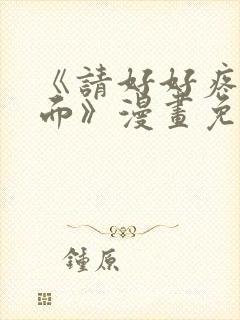 《請好好疼
而》漫畫免
鍾原